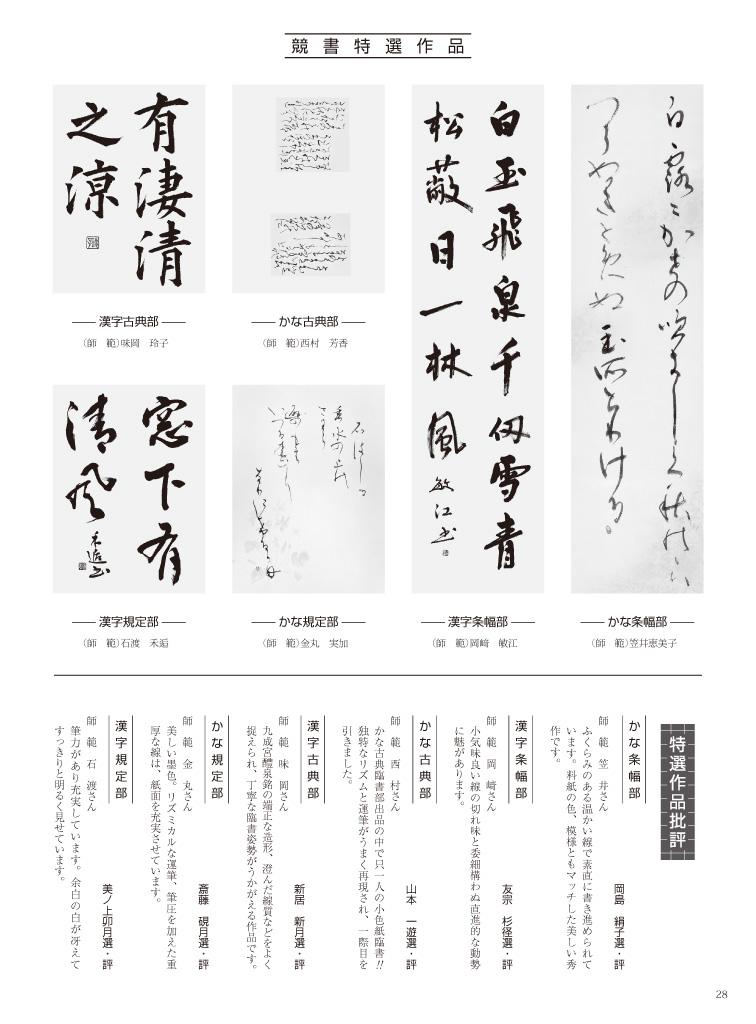 競書特選作品
有淒清
之涼
漢字古典部
（師　範）味岡　玲子
かな古典部
（師　範）西村　芳香
白玉飛泉千仭雪青
松蔽日一林風
敏江書
漢字条幅部
（師　範）岡﨑　敏江
かな条幅部
（師　範）笠井恵美子
窓下有
清風
漢字規定部
（師　範）石渡　禾逅
かな規定部
（師　範）金丸　実加
特選作品批評
かな条幅部
岡島　絹子選・評
師　範　笠　井さん
ふくらみのある温かい線で素直に書き進められて
います。料紙の色、模様ともマッチした美しい秀
作です。
漢字条幅部
友宗　杉径選・評
師　範　岡　﨑さん
小気味良い線の切れ味と委細構わぬ直進的な動勢
に魅があります。
かな古典部
山本　一遊選・評
師　範　西　村さん
かな古典臨書部出品の中で只一人の小色紙臨書!!
独特なリズムと運筆がうまく再現され、一際目を
引きました。
漢字古典部
新居　新月選・評
師　範　味　岡さん
九成宮醴泉銘の端正な造形、澄んだ線質などをよく
捉えられ、丁寧な臨書姿勢がうかがえる作品です。
かな規定部
斎藤　硯月選・評
師　範　金　丸さん
美しい墨色。リズミカルな運筆、筆圧を加えた重
厚な線は、紙面を充実させています。
漢字規定部
美ノ上卯月選・評
師　範　石　渡さん
筆力があり充実しています。余白の白が冴えて
すっきりと明るく見せています。
28